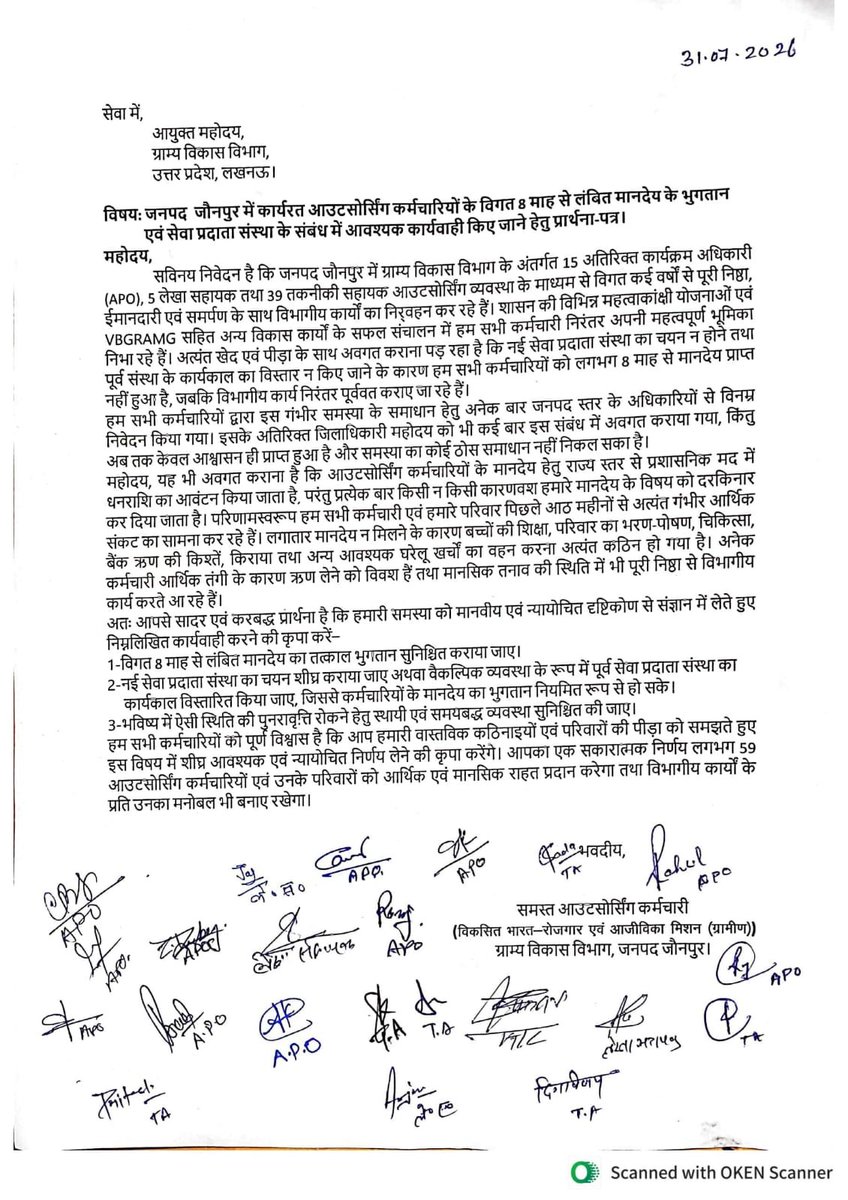 31.07.2026
सेवा में,
आयुक्त महोदय,
ग्राम्य विकास विभाग,
उत्तर प्रदेश, लखनऊ।
विषय: जनपद जौनपुर में कार्यरत आउटसोर्सिंग कर्मचारियों के विगत 8 माह से लंबित मानदेय के भुगतान
एवं सेवा प्रदाता संस्था के संबंध में आवश्यक कार्यवाही किए जाने हेतु प्रार्थना-पत्र।
महोदय,
सविनय निवेदन है कि जनपद जौनपुर में ग्राम्य विकास विभाग के अंतर्गत 15 अतिरिक्त कार्यक्रम अधिकारी
(APO), 5 लेखा सहायक तथा 39 तकनीकी सहायक आउटसोर्सिंग व्यवस्था के माध्यम से विगत कई वर्षों से पूरी निष्ठा,
ईमानदारी एवं समर्पण के साथ विभागीय कार्यों का निर्वहन कर रहे हैं। शासन की विभिन्न महत्वाकांक्षी योजनाओं एवं
VBGRAMG सहित अन्य विकास कार्यों के सफल संचालन में हम सभी कर्मचारी निरंतर अपनी महत्वपूर्ण भूमिका
निभा रहे हैं। अत्यंत खेद एवं पीड़ा के साथ अवगत कराना पड़ रहा है कि नई सेवा प्रदाता संस्था का चयन न होने तथा
पूर्व संस्था के कार्यकाल का विस्तार न किए जाने के कारण हम सभी कर्मचारियों को लगभग 8 माह से मानदेय प्राप्त
नहीं हुआ है, जबकि विभागीय कार्य निरंतर पूर्ववत कराए जा रहे हैं।
हम सभी कर्मचारियों द्वारा इस गंभीर समस्या के समाधान हेतु अनेक बार जनपद स्तर के अधिकारियों से विनम्र
निवेदन किया गया। इसके अतिरिक्त जिलाधिकारी महोदय को भी कई बार इस संबंध में अवगत कराया गया, किंतु
अब तक केवल आश्वासन ही प्राप्त हुआ है और समस्या का कोई ठोस समाधान नहीं निकल सका है।
महोदय, यह भी अवगत कराना है कि आउटसोर्सिंग कर्मचारियों के मानदेय हेतु राज्य स्तर से प्रशासनिक मद में
धनराशि का आवंटन किया जाता है, परंतु प्रत्येक बार किसी न किसी कारणवश हमारे मानदेय के विषय को दरकिनार
कर दिया जाता है। परिणामस्वरूप हम सभी कर्मचारी एवं हमारे परिवार पिछले आठ महीनों से अत्यंत गंभीर आर्थिक
संकट का सामना कर रहे हैं। लगातार मानदेय न मिलने के कारण बच्चों की शिक्षा, परिवार का भरण-पोषण, चिकित्सा,
बैंक ऋण की किश्तें, किराया तथा अन्य आवश्यक घरेलू खर्चों का वहन करना अत्यंत कठिन हो गया है। अनेक
कर्मचारी आर्थिक तंगी के कारण ऋण लेने को विवश हैं तथा मानसिक तनाव की स्थिति में भी पूरी निष्ठा से विभागीय
कार्य करते आ रहे हैं।
अतः आपसे सादर एवं करबद्ध प्रार्थना है कि हमारी समस्या को मानवीय एवं न्यायोचित दृष्टिकोण से संज्ञान में लेते हुए
निम्नलिखित कार्यवाही करने की कृपा करें–
1-विगत 8 माह से लंबित मानदेय का तत्काल भुगतान सुनिश्चित कराया जाए।
2-नई सेवा प्रदाता संस्था का चयन शीघ्र कराया जाए अथवा वैकल्पिक व्यवस्था के रूप में पूर्व सेवा प्रदाता संस्था का
कार्यकाल विस्तारित किया जाए, जिससे कर्मचारियों के मानदेय का भुगतान नियमित रूप से हो सके।
3-भविष्य में ऐसी स्थिति की पुनरावृत्ति रोकने हेतु स्थायी एवं समयबद्ध व्यवस्था सुनिश्चित की जाए।
हम सभी कर्मचारियों को पूर्ण विश्वास है कि आप हमारी वास्तविक कठिनाइयों एवं परिवारों की पीड़ा को समझते हुए
इस विषय में शीघ्र आवश्यक एवं न्यायोचित निर्णय लेने की कृपा करेंगे। आपका एक सकारात्मक निर्णय लगभग 59
आउटसोर्सिंग कर्मचारियों एवं उनके परिवारों को आर्थिक एवं मानसिक राहत प्रदान करेगा तथा विभागीय कार्यों के
प्रति उनका मनोबल भी बनाए रखेगा।
भवदीय,
APO. A.PO TA Rahul APO
समस्त आउटसोर्सिंग कर्मचारी
(विकसित भारत–रोजगार एवं आजीविका मिशन (ग्रामीण))
ग्राम्य विकास विभाग, जनपद जौनपुर।
APO APO. APO APO APO
APO A.PO A.P.O T.A T.A TA
TA T.A
Scanned with OKEN Scanner